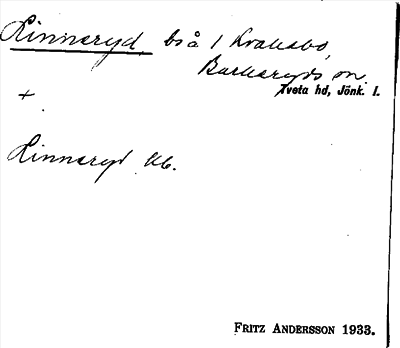 Linneryd, bså / Krakabo,
Barkeryds sn.
Tveta hd, Jönk. l.
+
Linneryd
FRITZ ANDERSSON 1933.